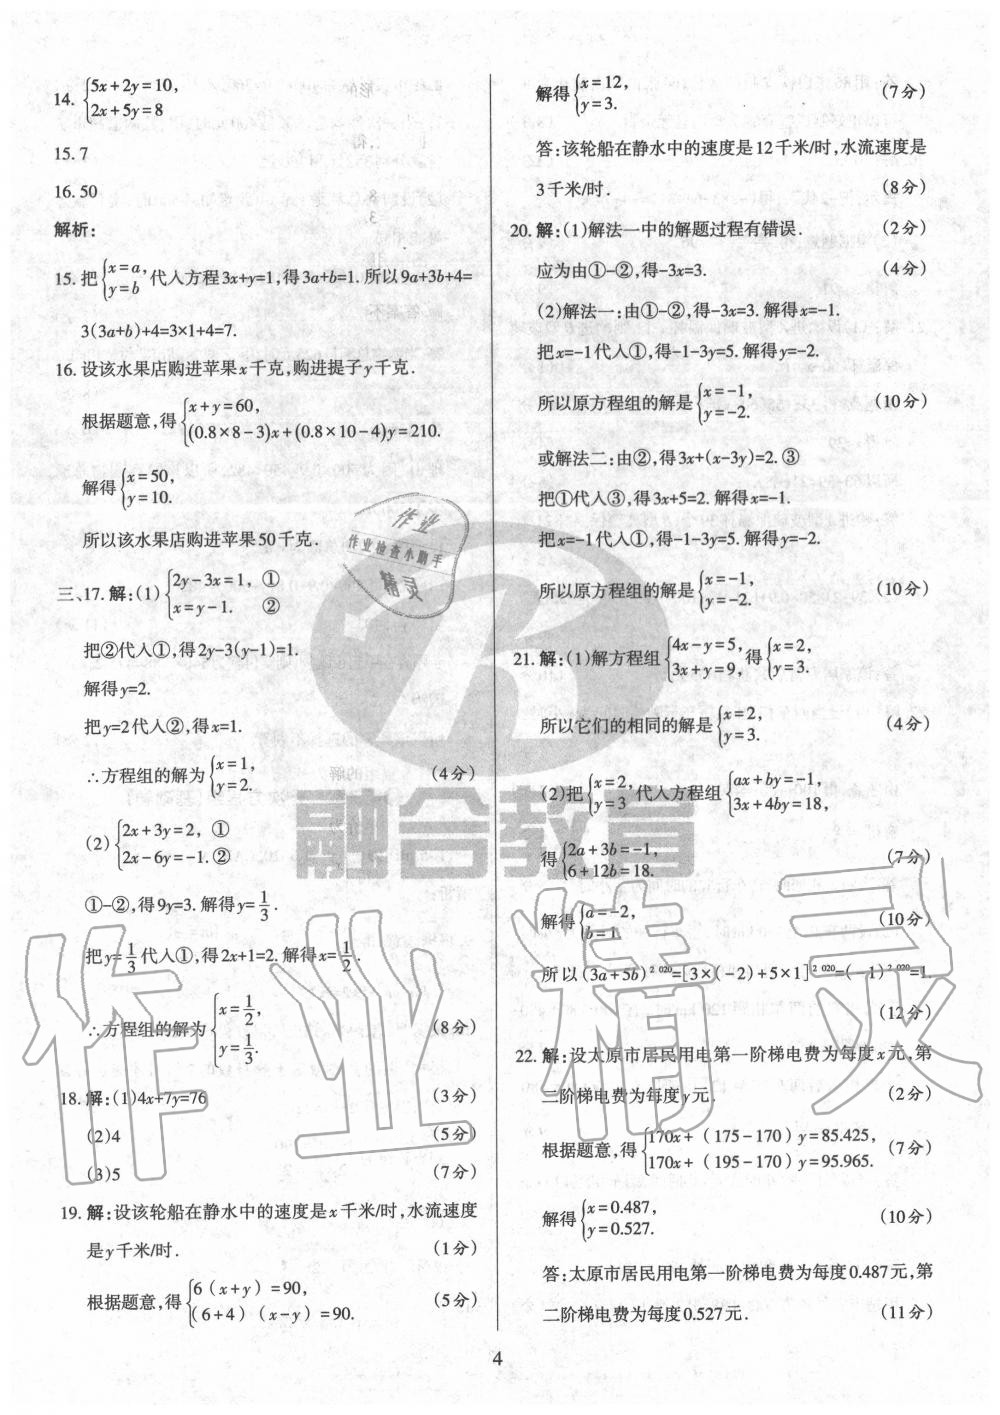 14. {5x+2y=10,
2x+5y=8
15. 7
16. 50
解析：
15. 把{x=a, y=b代入方程3x+y=1,得3a+b=1. 所以9a+3b+4=
3(3a+b)+4=3×1+4=7.
16. 设该水果店购进苹果x千克,购进提子y千克.
根据题意,得{x+y=60,
(0.8×8-3)x+(0.8×10-4)y=210.
解得{x=50,
y=10.
所以该水果店购进苹果50千克.
三、17. 解:(1){2y-3x=1, ①
x=y-1. ②
把②代入①,得2y-3(y-1)=1.
解得y=2.
把y=2代入②,得x=1.
∴方程组的解为{x=1,
y=2. (4分)
(2){2x+3y=2, ①
2x-6y=-1. ②
①-②,得9y=3. 解得y=1/3.
把y=1/3代入①,得2x+1=2. 解得x=1/2.
∴方程组的解为{x=1/2,
y=1/3. (8分)
18. 解:(1)4x+7y=76 (3分)
(2)4 (5分)
(3)5 (7分)
19. 解:设该轮船在静水中的速度是x千米/时,水流速度
是y千米/时. (1分)
根据题意,得{6(x+y)=90,
(6+4)(x-y)=90. (5分)
解得{x=12,
y=3. (7分)
答:该轮船在静水中的速度是12千米/时,水流速度是
3千米/时. (8分)
20. 解:(1)解法一中的解题过程有错误. (2分)
应为由①-②,得-3x=3. (4分)
(2)解法一:由①-②,得-3x=3. 解得x=-1.
把x=-1代入①,得-1-3y=5. 解得y=-2.
所以原方程组的解是{x=-1,
y=-2. (10分)
或解法二:由②,得3x+(x-3y)=2. ③
把①代入③,得3x+5=2. 解得x=-1.
把x=-1代入①,得-1-3y=5. 解得y=-2.
所以原方程组的解是{x=-1,
y=-2. (10分)
21. 解:(1)解方程组{4x-y=5,
3x+y=9, 得{x=2,
y=3.
所以它们的相同的解是{x=2,
y=3. (4分)
(2)把{x=2,
y=3代入方程组{ax+by=-1,
3x+4by=18,
得{2a+3b=-1,
6+12b=18. (7分)
解得{a=-2,
b=1. (10分)
所以(3a+5b)^2 020=[3×(-2)+5×1]^2 020=(-1)^2 020=1.
(12分)
22. 解:设太原市居民用电第一阶梯电费为每度x元,第
二阶梯电费为每度y元. (2分)
根据题意,得{170x+(175-170)y=85.425,
170x+(195-170)y=95.965. (7分)
解得{x=0.487,
y=0.527. (10分)
答:太原市居民用电第一阶梯电费为每度0.487元,第
二阶梯电费为每度0.527元. (11分)
4
作业
作业检查小助手
精灵
融合教育
作业精灵